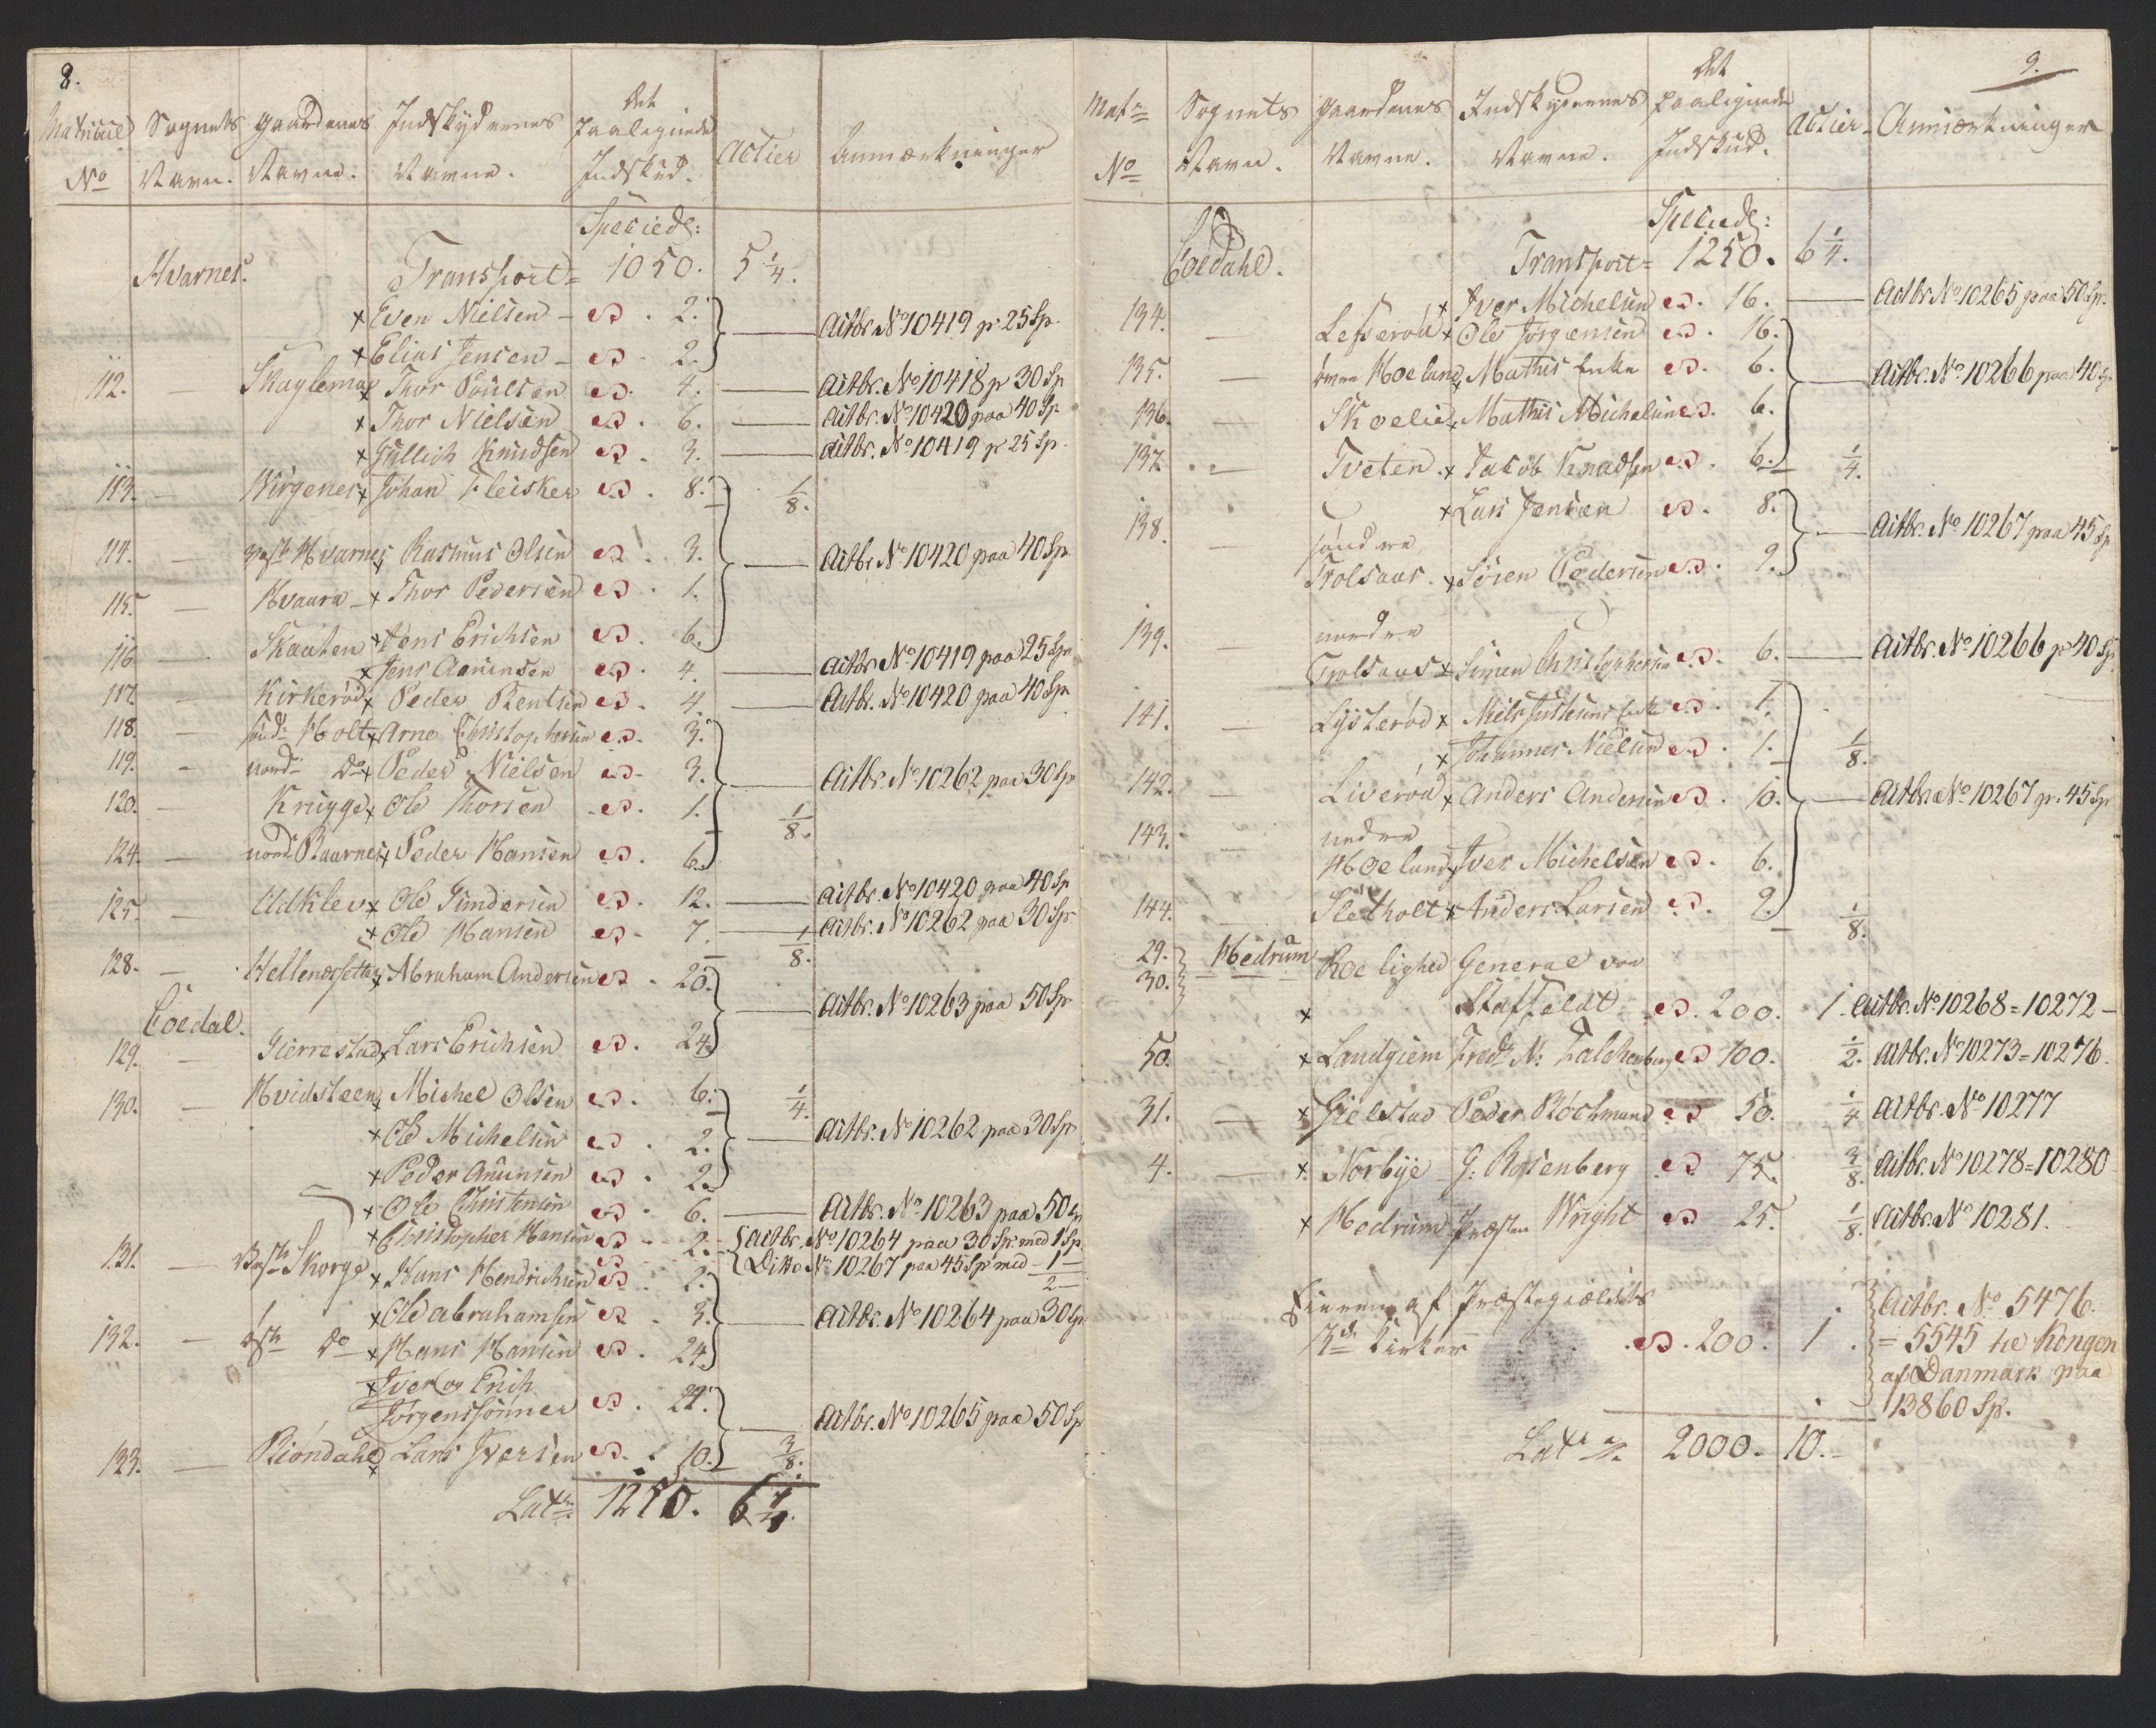 8.
Matricul No | Sognets Navn. | Gaardenes Navne. | Indskydernes Navne. | Det paalignede Indskud. | Actier | Anmærkninger
Speciedl:
Hvarnes. Transport = 1050. 5 1/4.
x Even Nielsen - 2. Actbr. No 10419 p. 25 Sp.
x Elias Jensen - 2.
112. — x Thor Poulsen 4. Actbr. No 10418 p 30 Sp
x Thor Nielsen 6. Actbr. No 10420 paa 40 Sp.
x Gullich Knudsen 3. Actbr. No 10419 p 25 Sp.
113. — Wirgenes x Johan Fleisker 8. 1/8.
114. — Hvarnes x Rasmus Olsen 3. Actbr. No 10420 paa 40 Sp.
115. — Kvaara - x Thor Pedersen 1.
116 — Skauten x Jens Erichsen 6.
x Jens 4. Actbr. No 10419 paa 25 Sp.
117. — Kirkerød x Peder Bentsen 4. Actbr. No 10420 paa 40 Sp.
118. — sønd: Holt x Arne Christophersen 3.
119. - nord: Do x Peder Nielsen 3. Actbr. No 10262 paa 30 Sp
120. — Krugge x Ole Thorsen 1. 1/8.
124. — nord: x Peder Hansen 6.
125. — Udklev x Ole Gundersen 12. Actbr. No 10420 paa 40 Sp
x Ole Hansen 7. 1/8. Actbr. No 10262 paa 30 Sp.
128. — x Abraham Andersen 20. Actbr. No 10263 paa 50 Sp.
Coedal.
129. — Gierrestad x Lars Erichsen 24.
130. — Hvidsteen x Michel Olsen 6. 1/4.
x Ole Michelsen 2. Actbr. No 10262 paa 30 Sp.
x Peder Amunsen 2.
x Ole Christensen 6. Actbr. No 10263 paa 50 Sp
x Christopher Hansen 2. Actbr. No 10264 paa 30 Sp. med 1 Sp.
131. — Skorge x Hans Hendrichsen 2. Ditto No 10267 paa 45 Sp med - 1 —
2 —
x Ole Abrahamsen 3. Actbr. No 10264 paa 30 Sp
132. — Do x Hans Hansen 24.
x Iver og Erich
Jørgenssønner 24. Actbr. No 10265 paa 50 Sp
133. — Biøndahl x Lars Iversen 10. 3/8.
Lat: 1250. 6 1/4.
9.
Matr No | Sognets Navn. | Gaardenes Navne. | Indskydernes Navne. | Det paalignede Indskud. | Actier | Anmærkninger
Speciedl:
Coedahl. Transport = 1250. 6 1/4.
x Iver Michelsen 16. Actbr. No 10265 paa 50 Sp.
134. — Lefserød x Ole Jørgensen 16.
135. — Hoeland x Mathis Enke 6. Actbr. No 10266 paa 40 Sp.
136. — Skoelie x Mathis Michelsen 6.
137. — Tveten x Jacob Knudsen 6. 1/4.
x Lars Jensen 8.
138. — søndre Actbr. No 10267 paa 45 Sp
Trolsaas. x Søren Pedersen 9.
139. — nordre
Trolsaas x Simen Christophersen 6. Actbr. No 10266 p 40 Sp.
141. — Lysterød x Niels Enke 1.
x Johannes Nielsen 1. 1/8.
142. — Liverød x Anders Andersen 10. Actbr. No 10267 p. 45 Sp
143. — nedre
Hoeland x Iver Michelsen 6.
144. — Sletholt x Anders Larsen 2. 1/8.
29. Hedrum Roelighed General von
30. x Staffeldt 200. 1. Actbr. No 10268 = 10272 —
50. x Landgiem Fred: N: Falchenberg 100. 1/2. Actbr. No 10273 = 10276.
31. — x Gielstad Peder Bochmand 50. 1/4 Actbr. No 10277
4. — x Norbye G: Rosenberg 75. 3/8. Actbr. No 10278 = 10280
x Hedrum Præsten Wright 25. 1/8. Actbr. No 10281.
Eieren af Præstegiældets
3de Kirker 200. 1. Actbr. No 5476.
= 5545 he Kongen
af Danmark paa
13860 Sp.
Lat: 2000. 10.